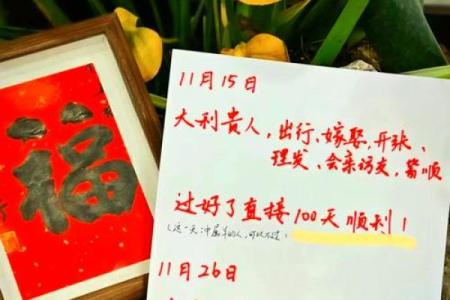 福
11月15日
大利贵人，出行、嫁娶、开张、
理发、会亲访友，皆顺
过好了直接100天顺利！
（这一天冲属羊的人，可以不过）
11月26日